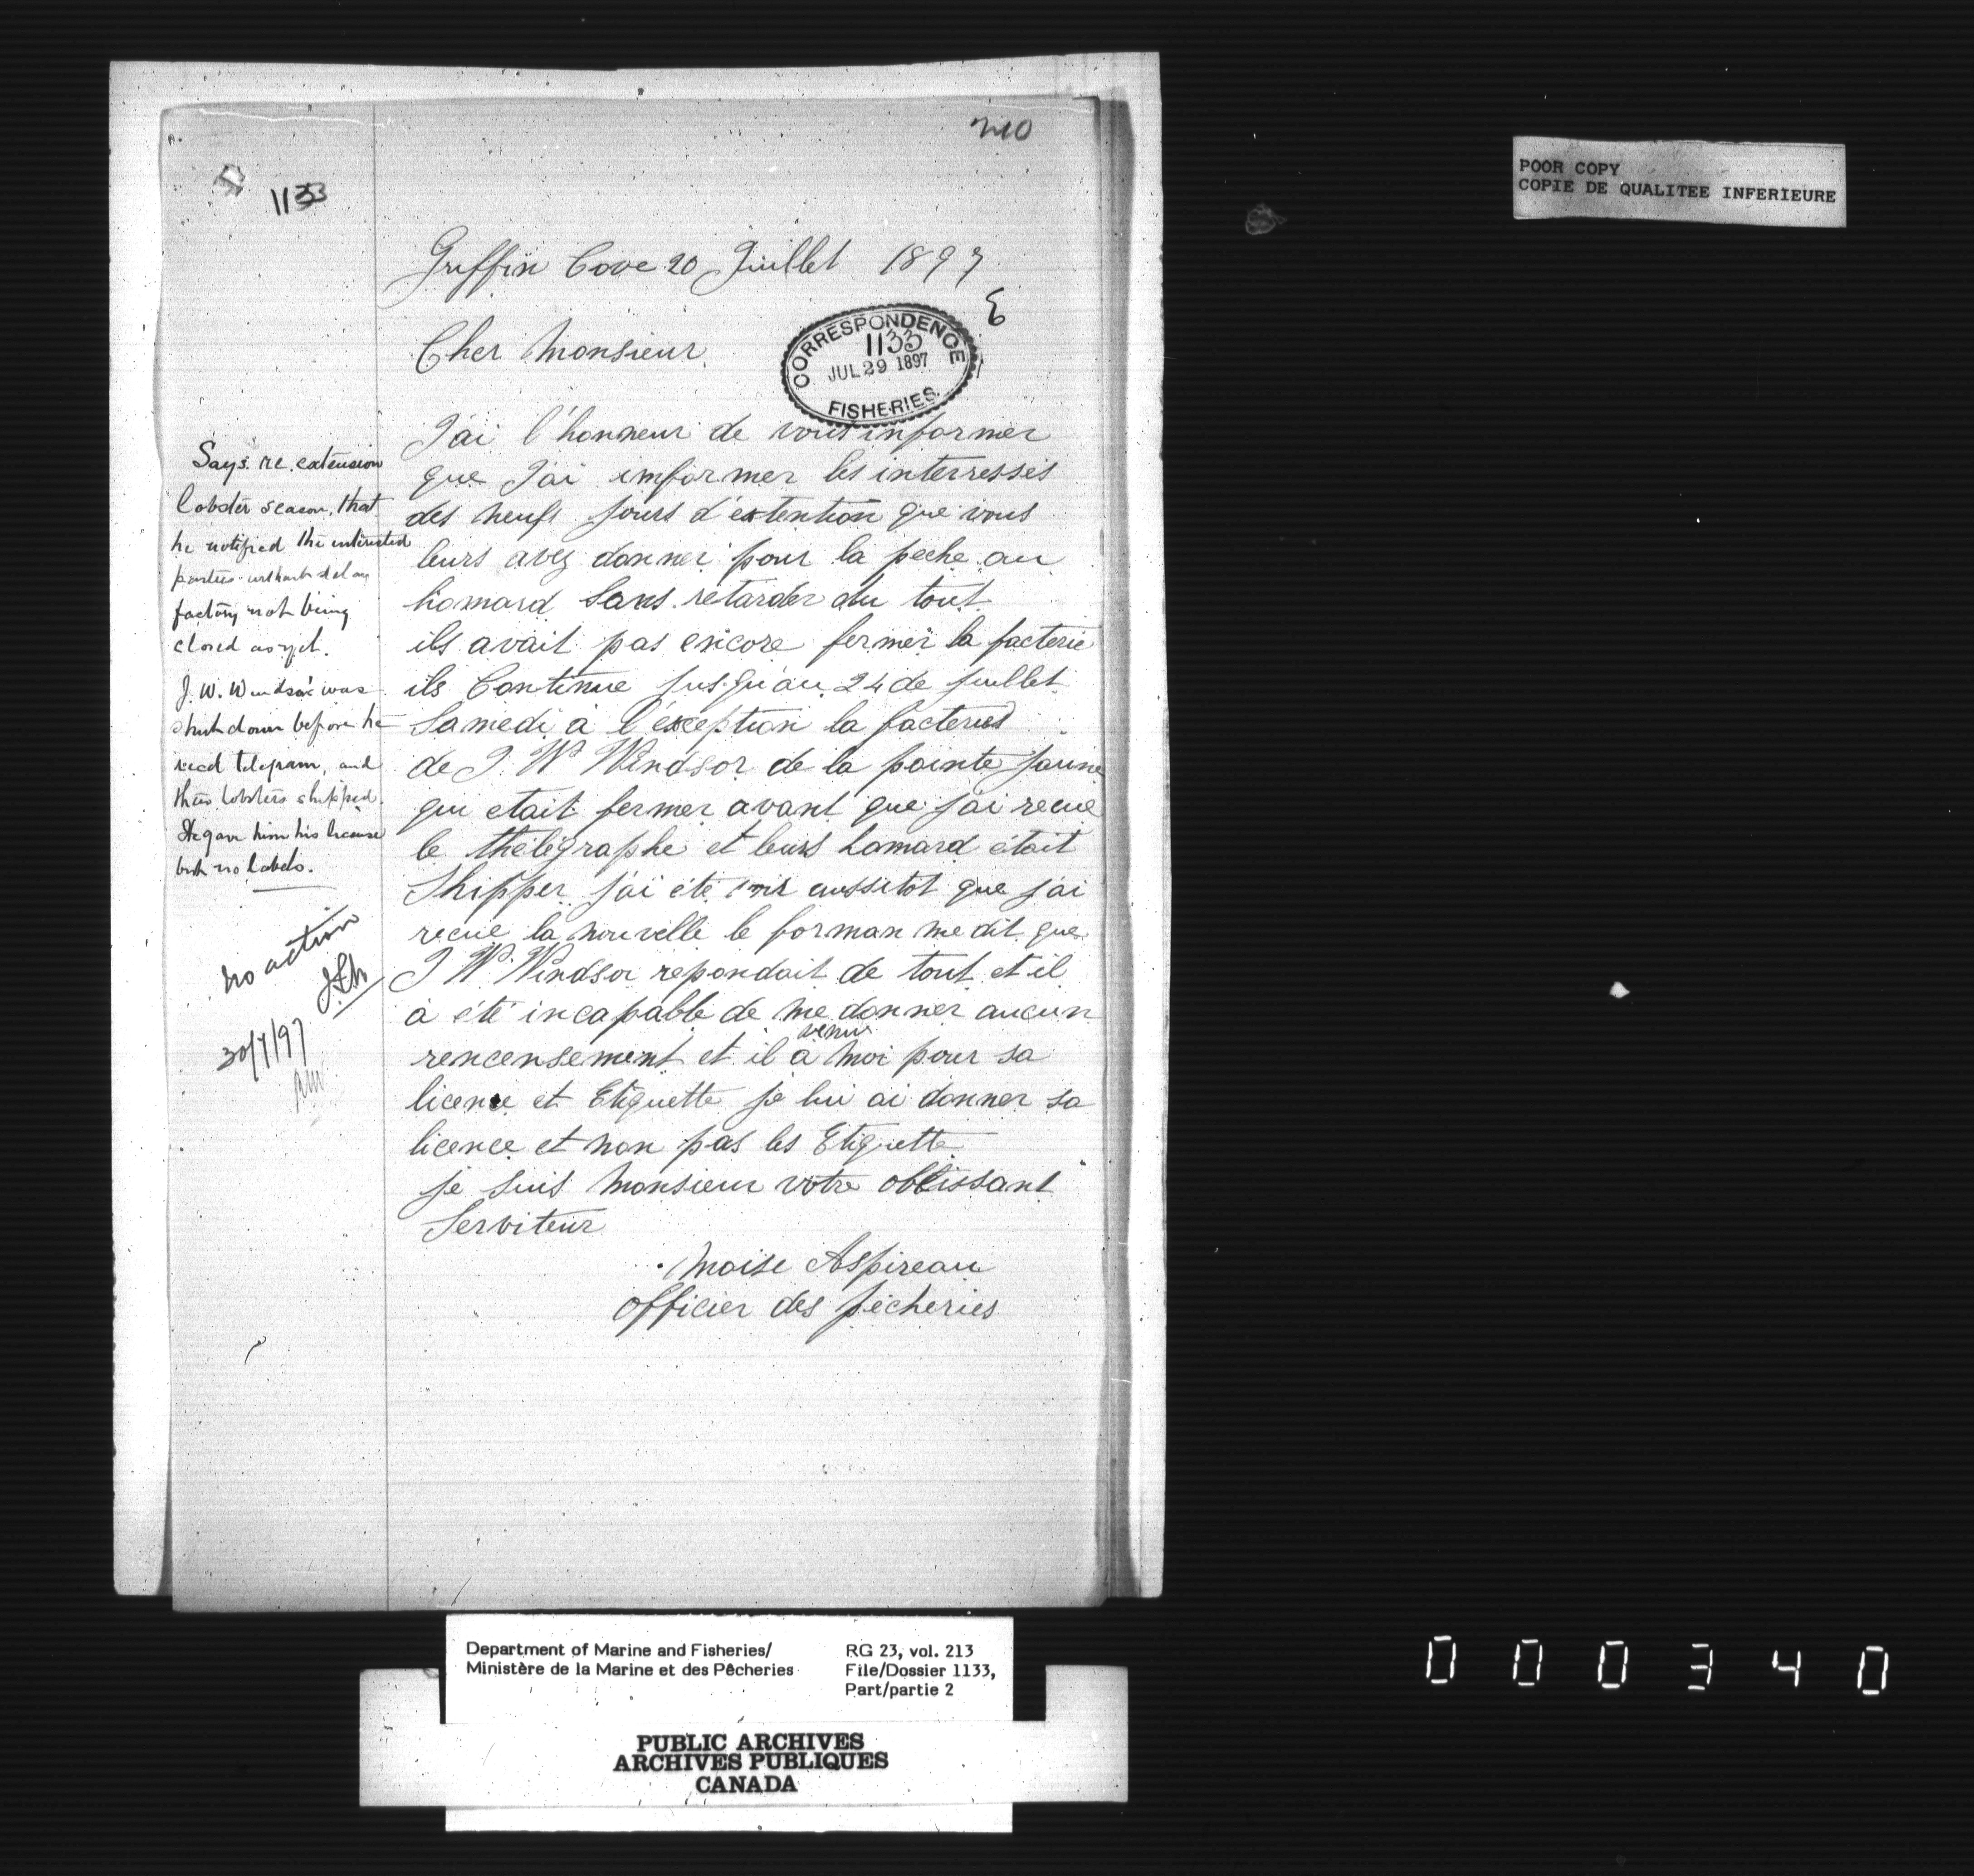 210
1133
Griffin Cove 20 Juillet 1897
E
Cher Monsieur
CORRESPONDENCE
1133
JUL 29 1897
FISHERIES
J'ai l'honneur de vous informer
que J'ai imformer les interressés
des neufs jours d'extention que vous
leurs avez donner pour la peche au
homard Sans retarder du tout
ils avait pas encore fermer la facterie
ils Continue jusqu'au 24 de juillet
Samedi à l'exception la facteries
de J. W Windsor de la pointe jaune
qui etait fermer avant que j'ai recue
le thélégraphe et leurs homard était
Shipper j'ai été aussitot que j'ai
recue la nouvelle le forman me dit que
J W. Windsor repondait de tout et il
à été incapable de me donner aucun
rencensement et il à venu moi pour sa
licence et Etiquette je lui ai donner sa
licence et non pas les Etiquette
je suis Monsieur votre obbissant
Serviteur
Moise Aspireau
officier des pécheries
Says. re. extension
lobster season, that
he notified the interested
parties without delay
factory not being
closed as yet.
J. W. Windsor was
shut down before he
recd telegram, and
their lobsters shipped.
He gave him his license
but no labels.
no action
30/7/97
POOR COPY
COPIE DE QUALITEE INFERIEURE
Department of Marine and Fisheries/
Ministère de la Marine et des Pêcheries
RG 23, vol. 213
File/Dossier 1133,
Part/partie 2
PUBLIC ARCHIVES
ARCHIVES PUBLIQUES
CANADA
000340